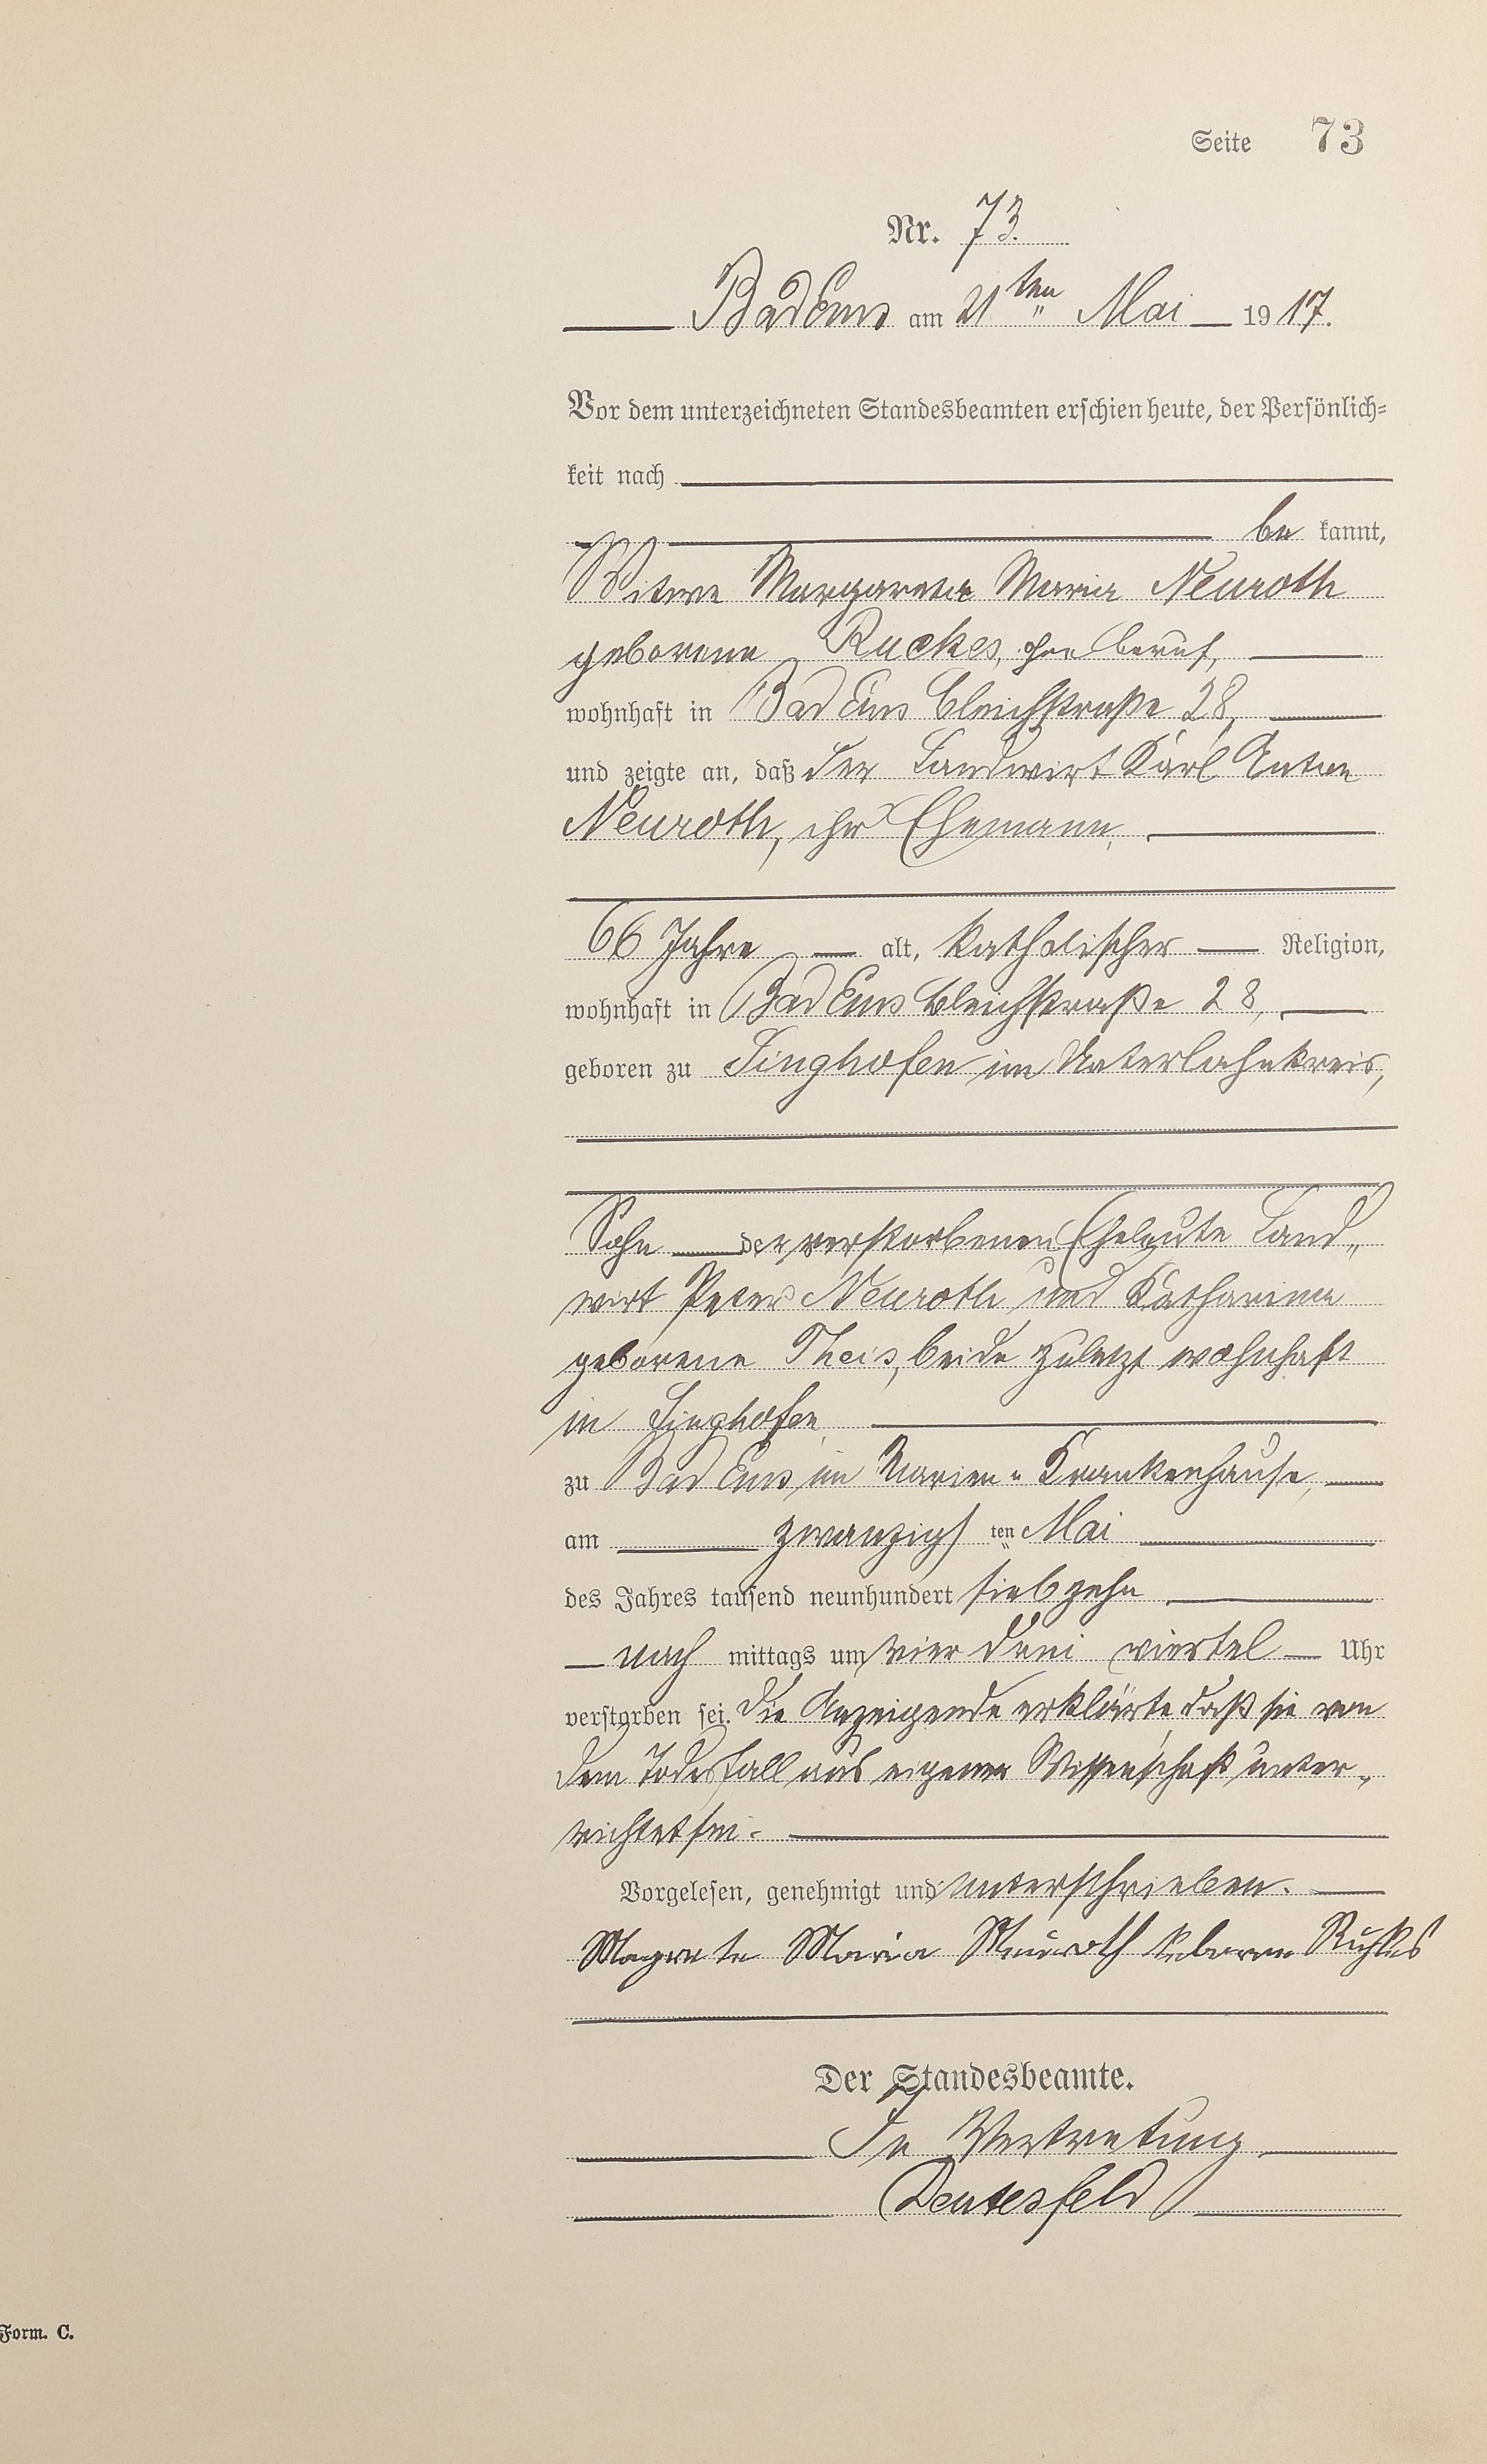 Seite 73
Nr. 73.
Bad Ems am 21ten Mai 1917.
Vor dem unterzeichneten Standesbeamten erschien heute, der Persönlich-
keit nach
be kannt,
Witwe Margareta Maria Neuroth
geborene Ruckes, ohne Beruf,
wohnhaft in Bad Ems Bleichstraße 28,
und zeigte an, daß der Landwirt Karl Anton
Neuroth, ihr Ehemann,
66 Jahre alt, katholischer Religion,
wohnhaft in Bad Ems Bleichstraße 28,
geboren zu Singhofen im Unterlahnkreis,
Sohn der verstorbenen Eheleute Land„
wirt Peter Neuroth und Katharina
geborene Theis, beide zuletzt wohnhaft
in Singhofen
zu Bad Ems im Marien„Krankenhause,
am zwanzigsten Mai
des Jahres tausend neunhundert siebzehn
nach mittags um vier drei viertel Uhr
verstorben sei. Die Anzeigende erklärte, daß sie von
dem Todesfall aus eigener Wissenschaft unter„
richtet sei.
Vorgelesen, genehmigt und unterschrieben.
Magrete Maria Neuroth geboren
Der Standesbeamte.
In Vertretung
Deutesfeld
Form. C.